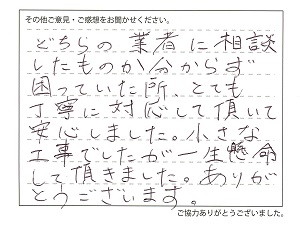 その他ご意見・ご感想をお聞かせください。
どちらの業者に相談
したものか分からず
困っていた所、とても
丁寧に対応して頂いて
安心しました。小さな
工事でしたが一生懸命
して頂きました。ありが
とうございます。
ご協力ありがとうございました。